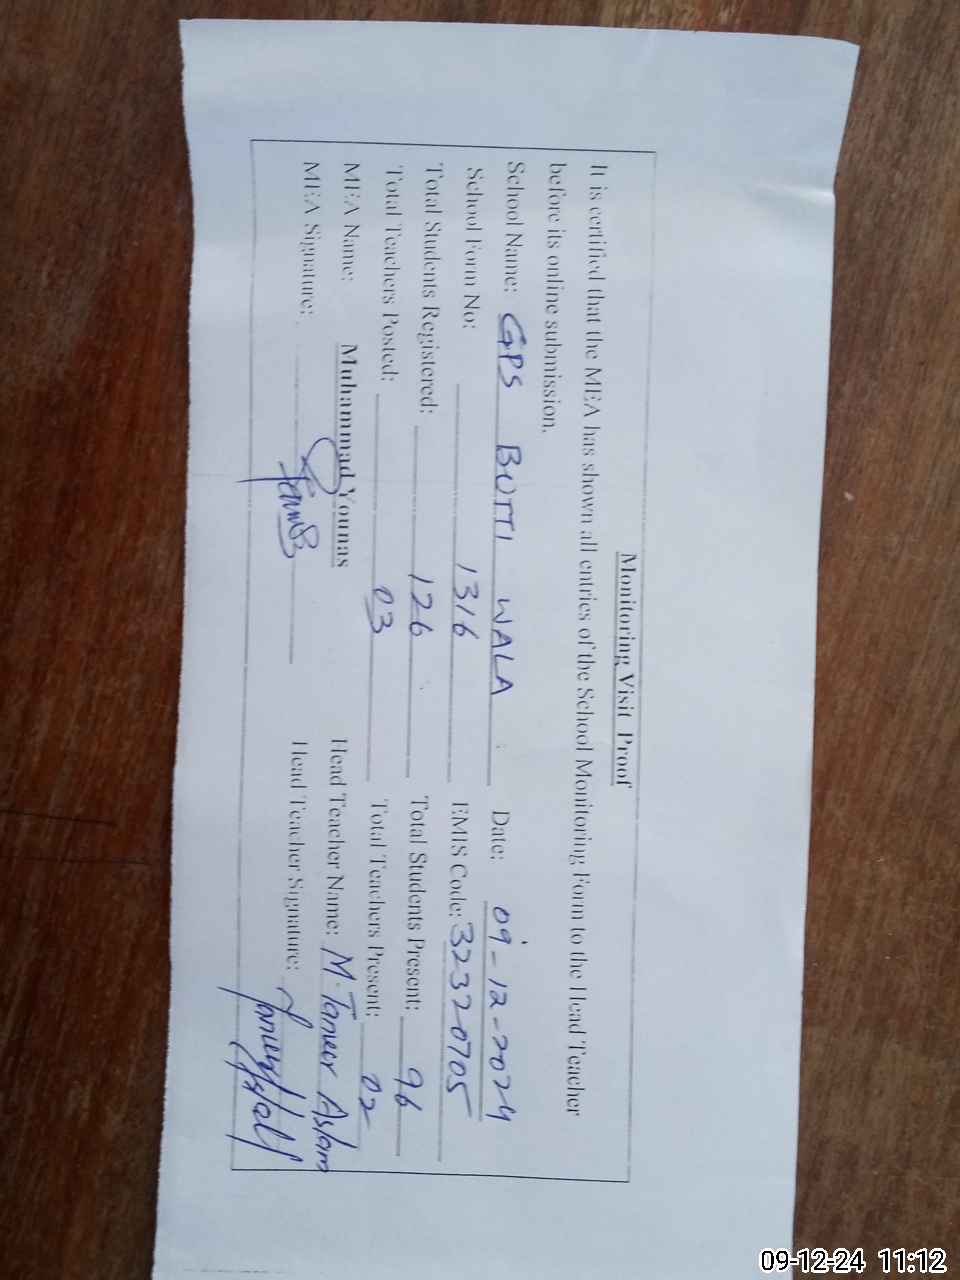 Monitoring Visit Proof
It is certified that the MEA has shown all entries of the School Monitoring Form to the Head Teacher
before its online submission.
School Name: GPS BUTTI WALA Date: 09-12-2024
School Form No: 1316 EMIS Code: 32320705
Total Students Registered: 126 Total Students Present: 96
Total Teachers Posted: 03 Total Teachers Present: 02
MEA Name: Muhammad Younas Head Teacher Name: M. Taneer Aslam
MEA Signature: Head Teacher Signature:
09-12-24 11:12